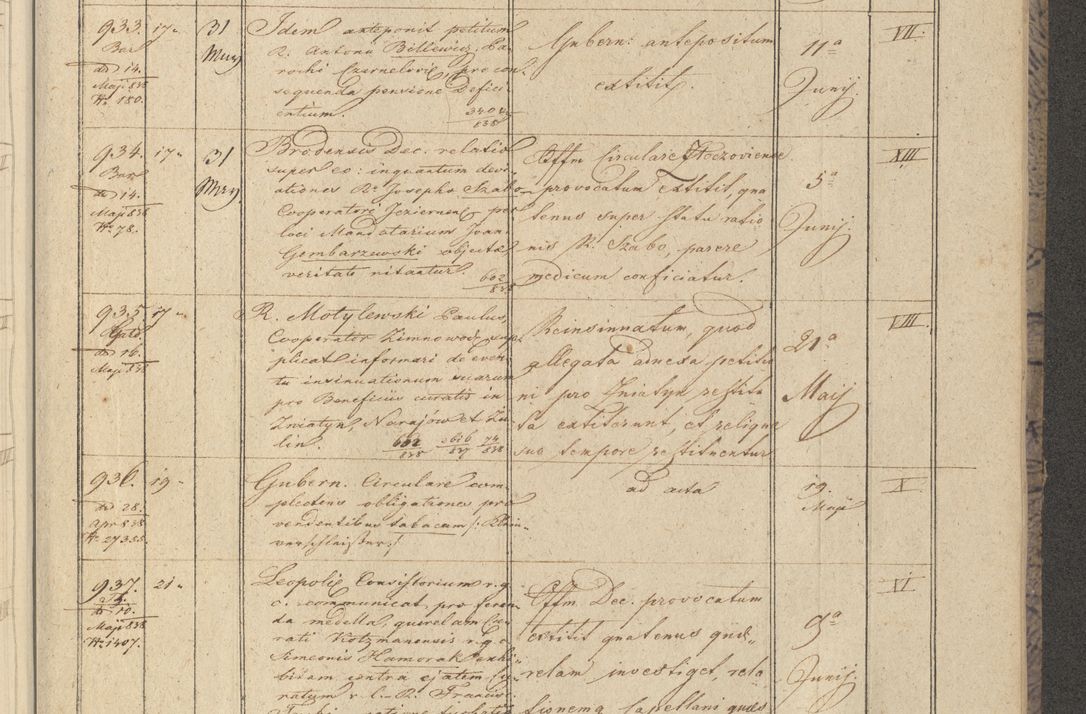 933. 17.
31
May
dto 14.
Maji 838
Nr. 180.
Idem anteponit petitum
R. Antonii Bilewicz, Pa-
rochi pro con
sequenda pensione Defici-
entium.
340
838
Gubern: antepositum
extitit.
11a
Junij.
VII.
934. 17.
31
May
dto 14.
Maji 838
Nr. 78.
Brodensis Dec. relatio
super eo: in quantum
Ri Josephi Szabo
Cooperatori per
loci Mandatarium Joan.
Gembarzewski objecta
veritate nitantur.
602
838
Offm Circulare Złoczoviense
provocatum extitit, qua
tenus super statu
nis R. Szabo, parere
medicum conficiatur.
5a
Junij.
XIII.
935. 17
dto 16.
Maji 838
R. Motylewski Paulus,
Cooperator sup
plicat informari de even-
tu insinuationum suarum
pro Beneficiis curatis in
Zniatyn, Narajów et Zu-
lin.
602
838
2616
837
74
838
Reinsinuatum, quod
allegata adnexa petitio
ni pro Zniatyn restitu
ta extiterunt, et reliqua
suo tempore restituentur
21a
Maij
VIII.
936. 19.
dto 28.
Apr 838
Nr. 27355.
Gubern. Circulare com-
plectens obligationes pro
vendentibus tabacam /: Klein-
verschleißer :/
ad acta
19.
Maji
X.
937. 21.
dto 10.
Maji 838
Nr. 1407.
Leopol. Consistorium r. g.
c. communicat pro feren
da medella, querelam Cu-
rati Kotzmanensis r. g. c.
Simeonis Hamorak exhi-
bitam contra ejatem
ratum r. l. R. Francisc.
Offm Dec. provocatum
extitit quatenus que-
relam investiget, rela
tionemq Capellani
9a
Junij.
XI